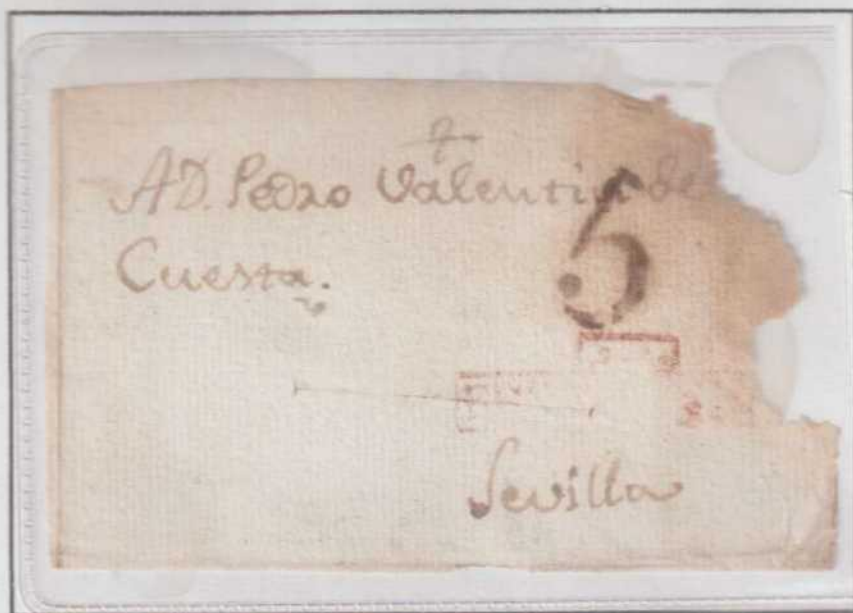 A D. Pedro Valentin de
Cuesta.
5
Sevilla